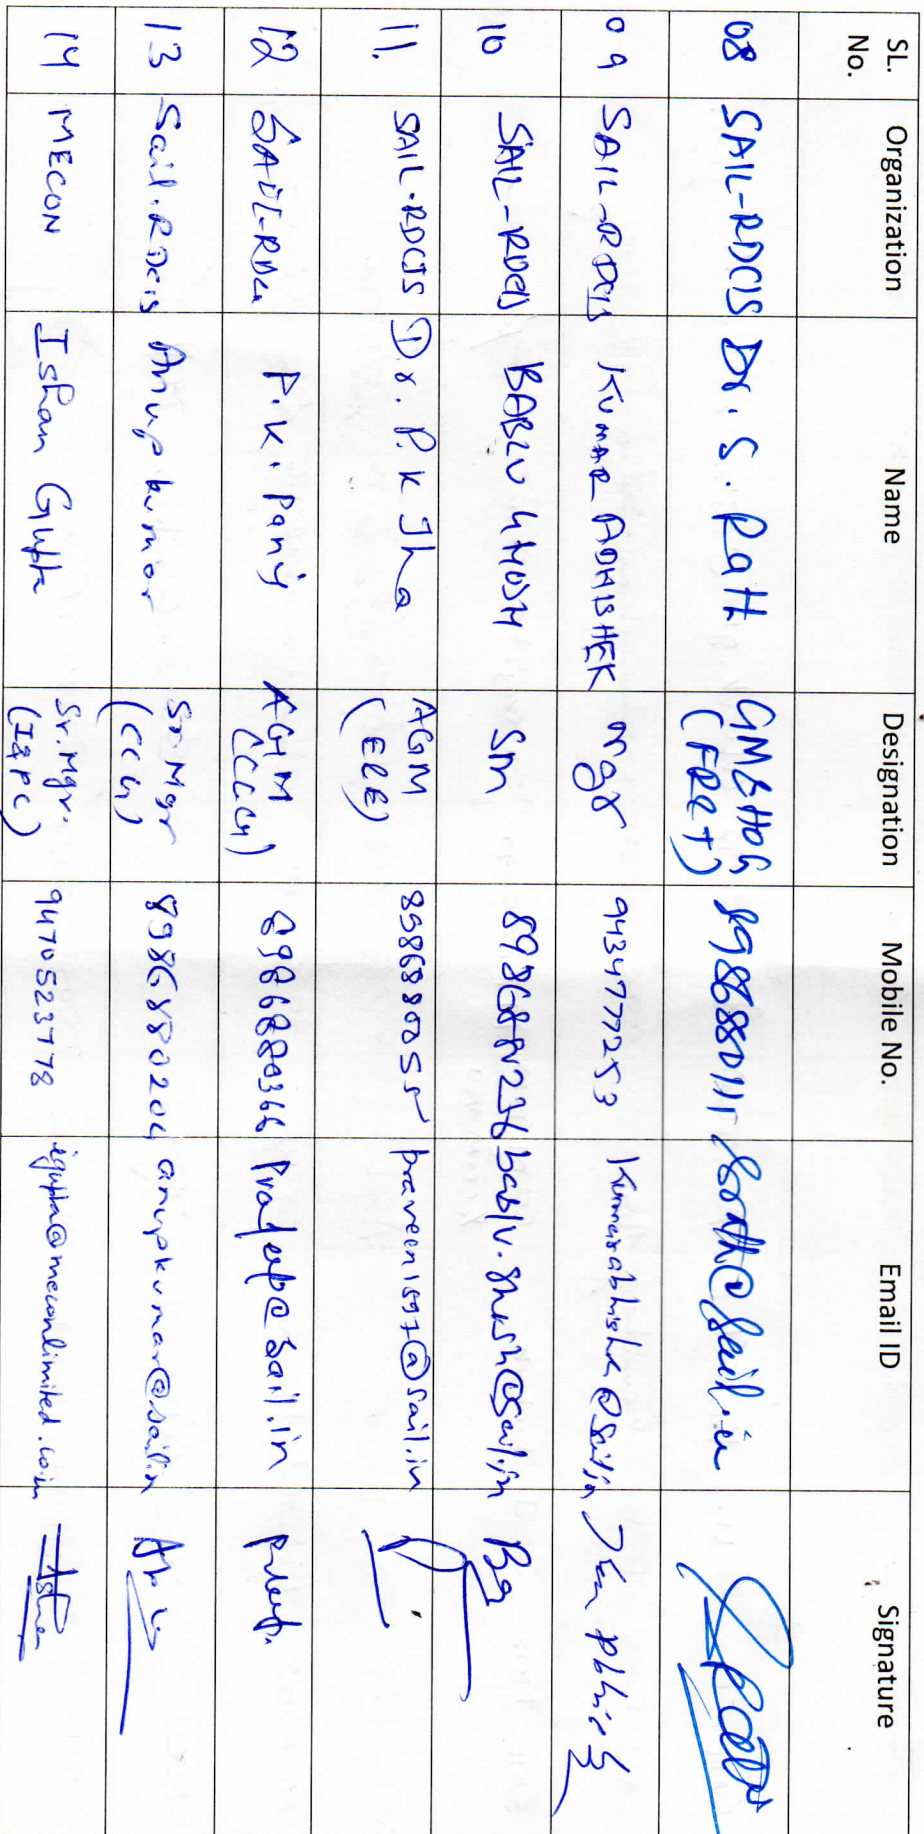 SL. No. Organization Name Designation Mobile No. Email ID Signature
08 SAIL-RDCIS Dr. S. Rath GM & HOG (FRET) 8986880111 srath@sail.in
09 SAIL-RDCIS KUMAR ABHISHEK mgr 9434777253 Kumarabhishek@sail.in
10 SAIL-RDCIS BABLU GHOSH Sm bablu.ghosh@sail.in
11. SAIL-RDCIS Dr. P. K Jha AGM (ELE) praveen1597@sail.in
12 SAIL-RDCIS P. K. Pany AGM (CCG) 8986880366
13 Sail.RDCIS Anup kumar Sr. Mgr (CCG) 8986880204 anupkumar@sail.in
14 MECON Ishan Gupta Sr. Mgr. (I&PC) 9470523778 igupta@meconlimited.co.in